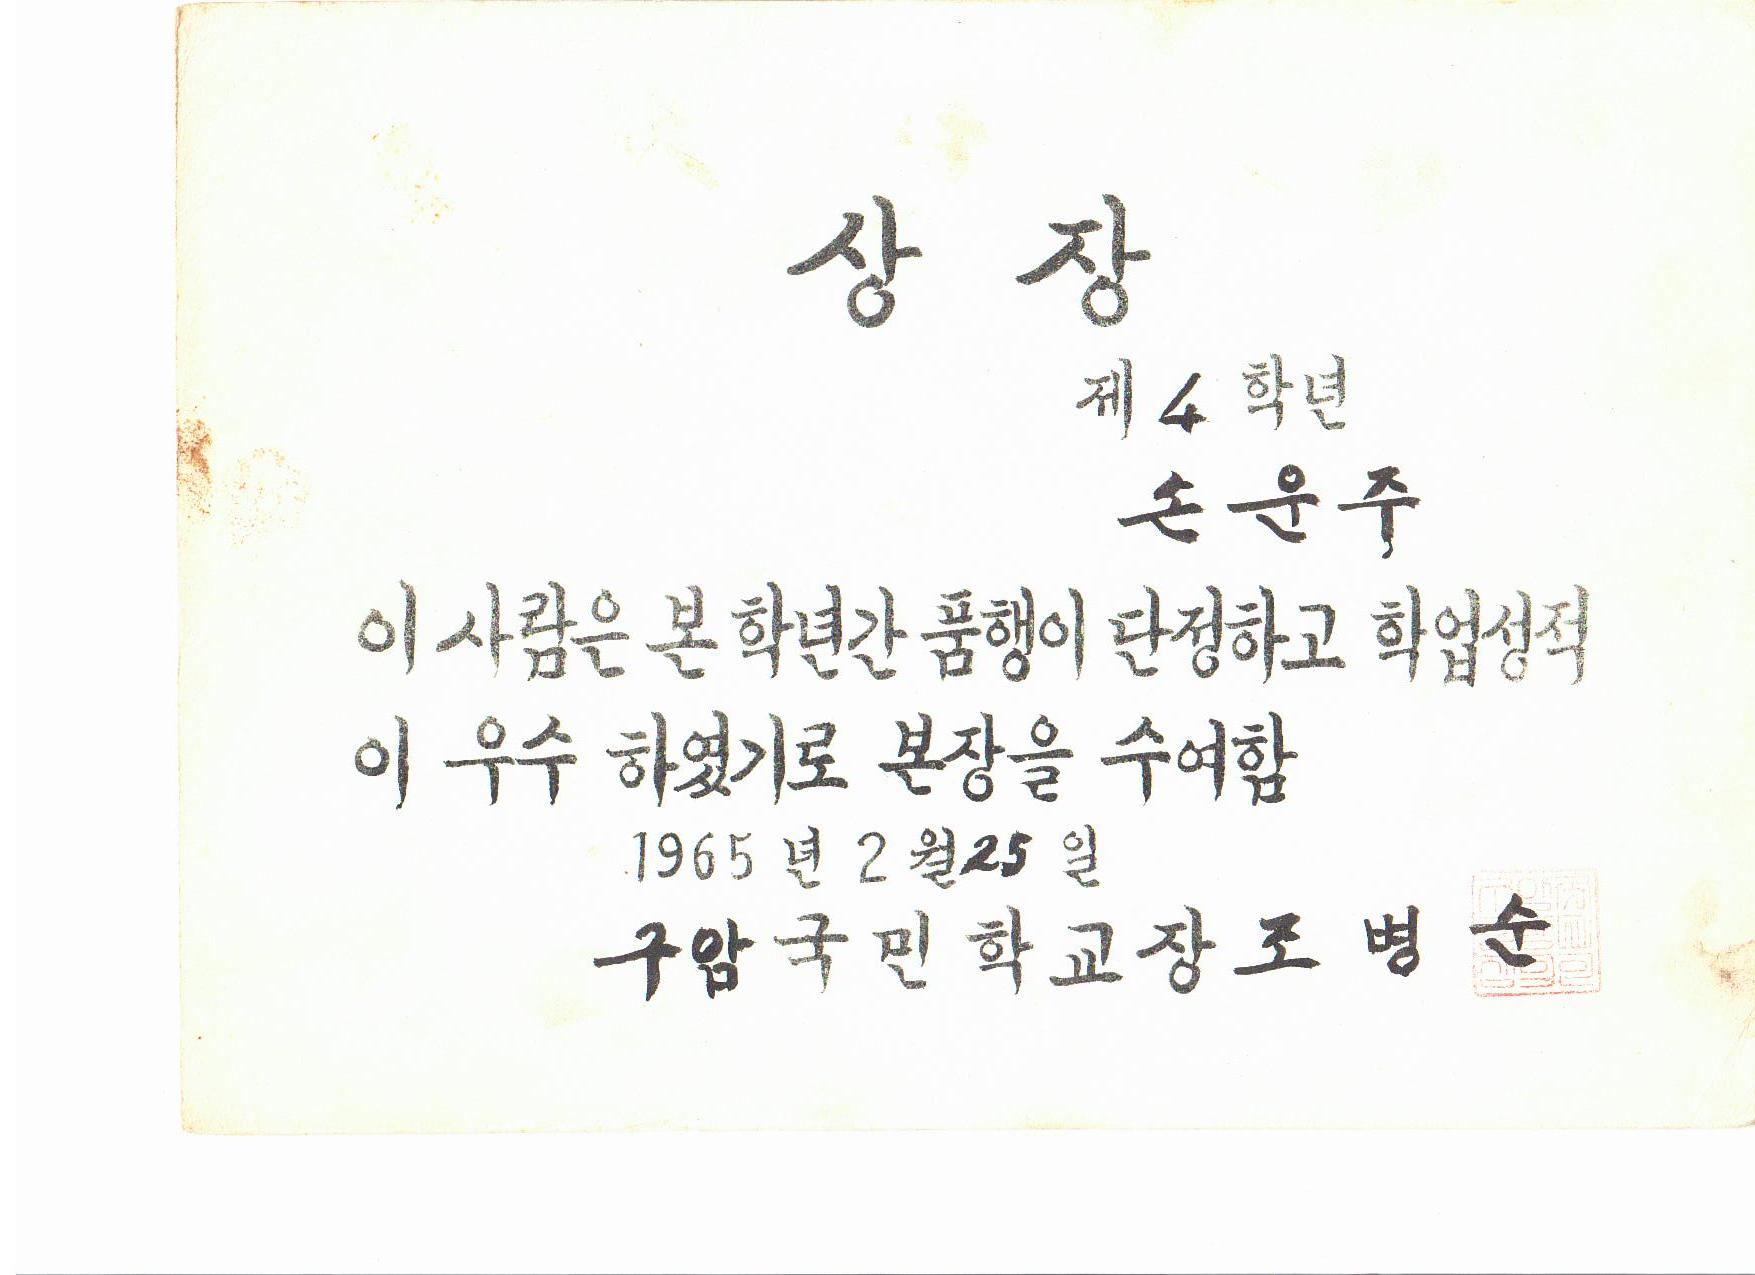 상 장
제 4 학년
손운주
이 사람은 본 학년간 품행이 단정하고 학업성적
이 우수 하였기로 본장을 수여함
1965 년 2 월 25 일
구암국민학교장 조병순